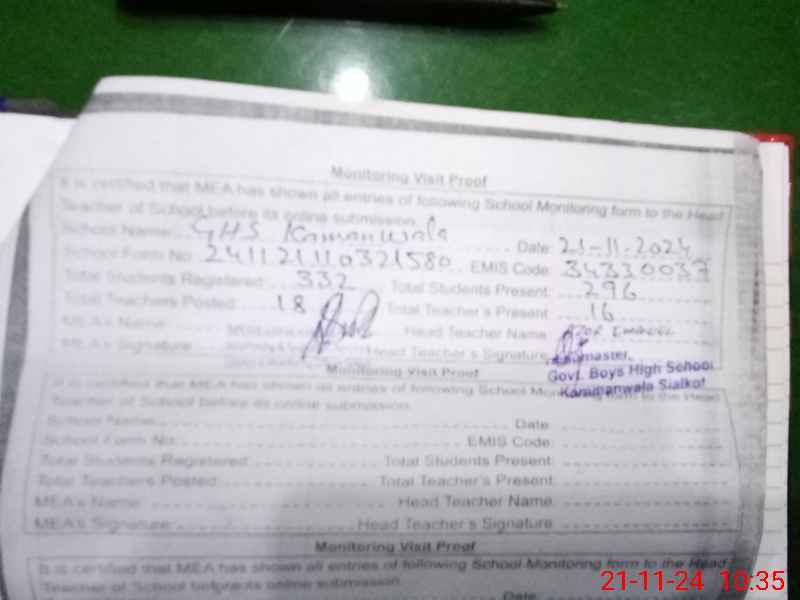 Monitoring Visit Proof
It is certified that MEA has shown all entries of following School Monitoring form to the Head
Teacher of School before its online submission.
School Name: GHS Kamanwala Date: 21-11-2024
School Form No. 241121110321580 EMIS Code: 34330037
Total Students Registered: 332 Total Students Present: 296
Total Teachers Posted: 18 Total Teacher's Present: 16
MEA's Name Head Teacher Name
MEA's Signature Head Teacher's Signature
Govt. Boys High School
Kamanwala Sialkot
Monitoring Visit Proof
It is certified that MEA has shown all entries of following School Monitoring form to the Head
Teacher of School before its online submission.
School Name: Date
School Form No. EMIS Code:
Total Students Registered: Total Students Present:
Total Teachers Posted: Total Teacher's Present:
MEA's Name Head Teacher Name
MEA's Signature Head Teacher's Signature
Monitoring Visit Proof
It is certified that MEA has shown all entries of following School Monitoring form to the Head
Teacher of School before its online submission.
Date
21-11-24 10:35